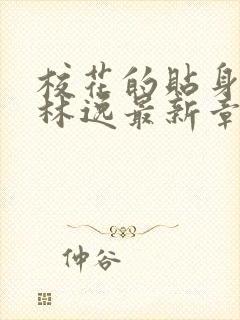 校花的貼身
林逸最新章
仲谷